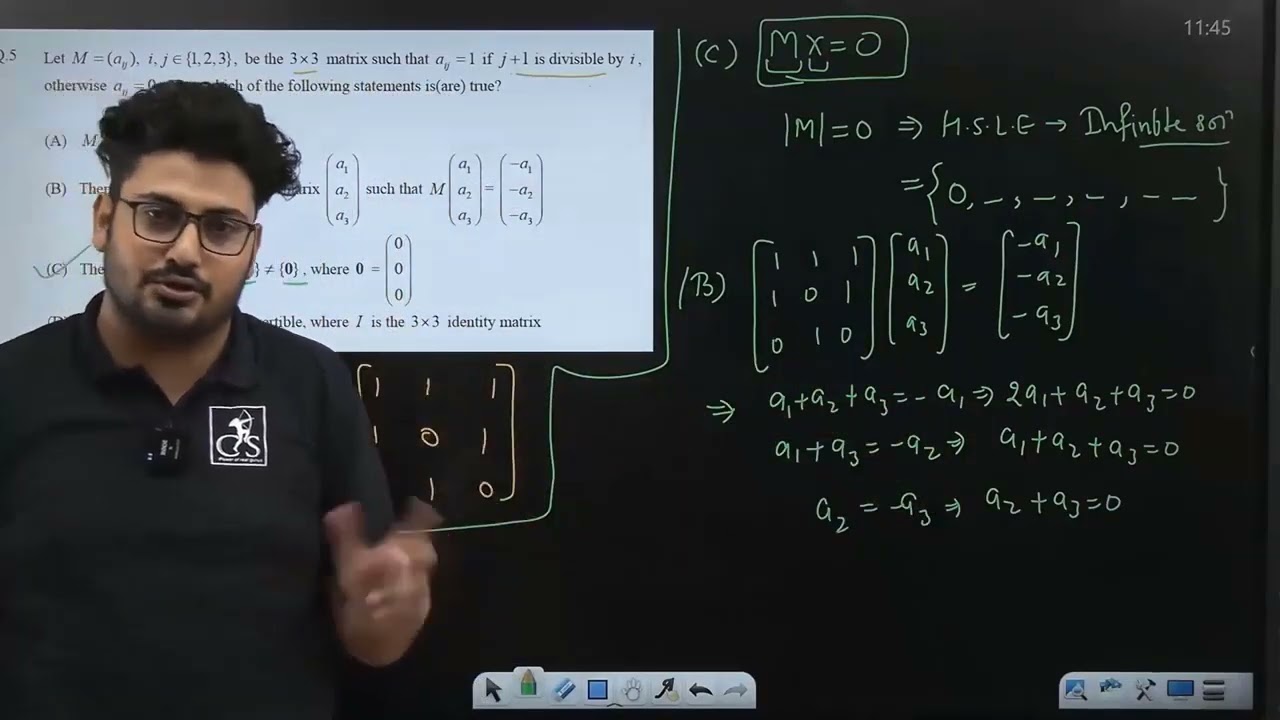 11:45
Q.5 Let M = (aᵢⱼ), i, j ∈ {1, 2, 3}, be the 3 × 3 matrix such that aᵢⱼ = 1 if j + 1 is divisible by i,
otherwise aᵢⱼ = of the following statements is(are) true?
(A) M
(B) (a₁ a₂ a₃) such that M (a₁ a₂ a₃) = (−a₁ −a₂ −a₃)
(C) The } ≠ {0}, where 0 = (0 0 0)
where I is the 3 × 3 identity matrix
1 1 1
0 1
1 0
(C) Mx = 0
|M| = 0 ⇒ H.S.L.E →
= {0, –, –, –, – – }
(B) [1 1 1] [a₁] = [−a₁]
[1 0 1] [a₂] [−a₂]
[0 1 0] [a₃] [−a₃]
⇒ a₁ + a₂ + a₃ = − a₁ ⇒ 2a₁ + a₂ + a₃ = 0
a₁ + a₃ = −a₂ ⇒ a₁ + a₂ + a₃ = 0
a₂ = −a₃ ⇒ a₂ + a₃ = 0